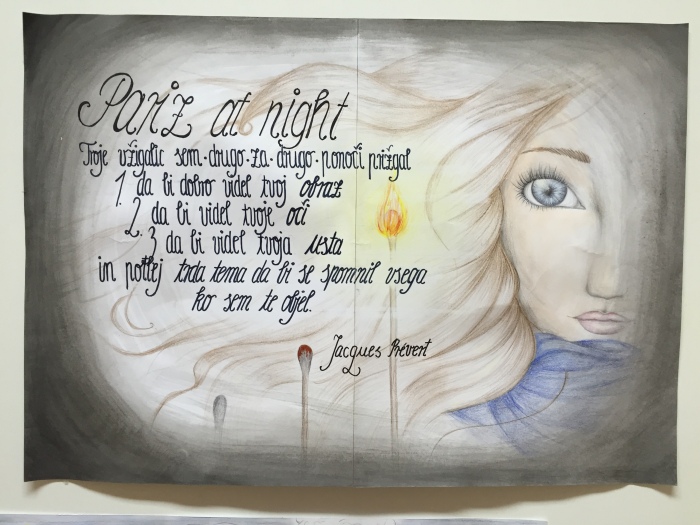 Pariz at night
Troje vžigalic sem drugo za drugo ponoči prižgal
1. da bi dobro videl tvoj obraz
2. da bi videl tvoje oči
3 da bi videl tvoja usta
in potlej trda tema da bi se spomnil vsega
ko sem te objel.
Jacques Prévert